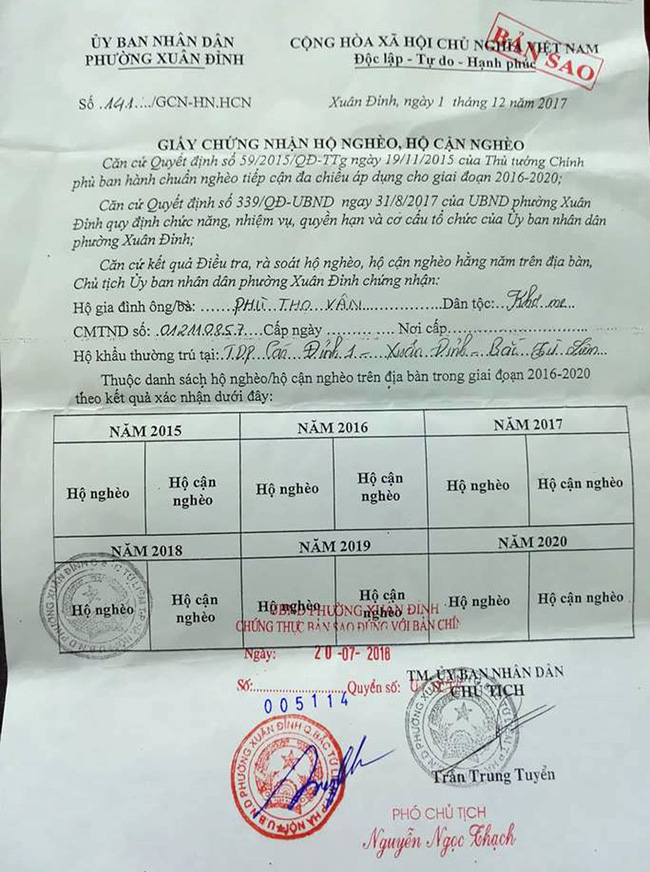 ỦY BAN NHÂN DÂN
PHƯỜNG XUÂN ĐỈNH
CỘNG HÒA XÃ HỘI CHỦ NGHĨA VIỆT NAM
Độc lập - Tự do - Hạnh phúc
BẢN SAO
Số .141.../GCN-HN.HCN
Xuân Đỉnh, ngày 1 tháng 12 năm 2017
GIẤY CHỨNG NHẬN HỘ NGHÈO, HỘ CẬN NGHÈO
Căn cứ Quyết định số 59/2015/QĐ-TTg ngày 19/11/2015 của Thủ tướng Chính
phủ ban hành chuẩn nghèo tiếp cận đa chiều áp dụng cho giai đoạn 2016-2020;
Căn cứ Quyết định số 339/QĐ-UBND ngay 31/8/2017 của UBND phường Xuân
Đỉnh quy định chức năng, nhiệm vụ, quyền hạn và cơ cấu tổ chức của Ủy ban nhân dân
phường Xuân Đỉnh;
Căn cứ kết quả Điều tra, rà soát hộ nghèo, hộ cận nghèo hằng năm trên địa bàn,
Chủ tịch Ủy ban nhân dân phường Xuân Đỉnh chứng nhận:
Hộ gia đình ông/bà: PHÙ THỌ VÂN Dân tộc: Khơ me
CMTND số: 012110857 Cấp ngày Nơi cấp
Hộ khẩu thường trú tại: TDP Cáo Đỉnh 1 - Xuân Đỉnh - Bắc Từ Liêm
Thuộc danh sách hộ nghèo/hộ cận nghèo trên địa bàn trong giai đoạn 2016-2020
theo kết quả xác nhận dưới đây:
NĂM 2015 NĂM 2016 NĂM 2017
Hộ nghèo Hộ cận nghèo Hộ nghèo Hộ cận nghèo Hộ nghèo Hộ cận nghèo
NĂM 2018 NĂM 2019 NĂM 2020
Hộ nghèo Hộ cận nghèo Hộ nghèo Hộ cận nghèo Hộ nghèo Hộ cận nghèo
UBND PHƯỜNG XUÂN ĐỈNH
CHỨNG THỰC BẢN SAO ĐÚNG VỚI BẢN CHÍNH
Ngày: 20-07-2018
Số: Quyển số:
005114
TM. ỦY BAN NHÂN DÂN
CHỦ TỊCH
Trần Trung Tuyển
U.B.N.D PHƯỜNG XUÂN ĐỈNH Q.BẮC TỪ LIÊM TP HÀ NỘI
PHÓ CHỦ TỊCH
Nguyễn Ngọc Thạch